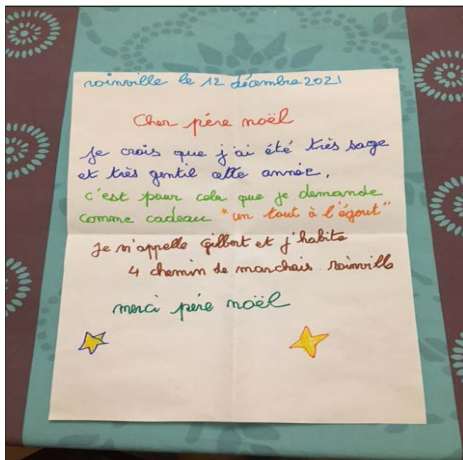 roinville le 12 décembre 2021
Cher père noël
je crois que j'ai été très sage
et très gentil cette année,
c'est pour cela que je demande
comme cadeau "un tout à l'égout"
je m'appelle Gilbert et j'habite
4 chemin de marchais roinville
merci père noël